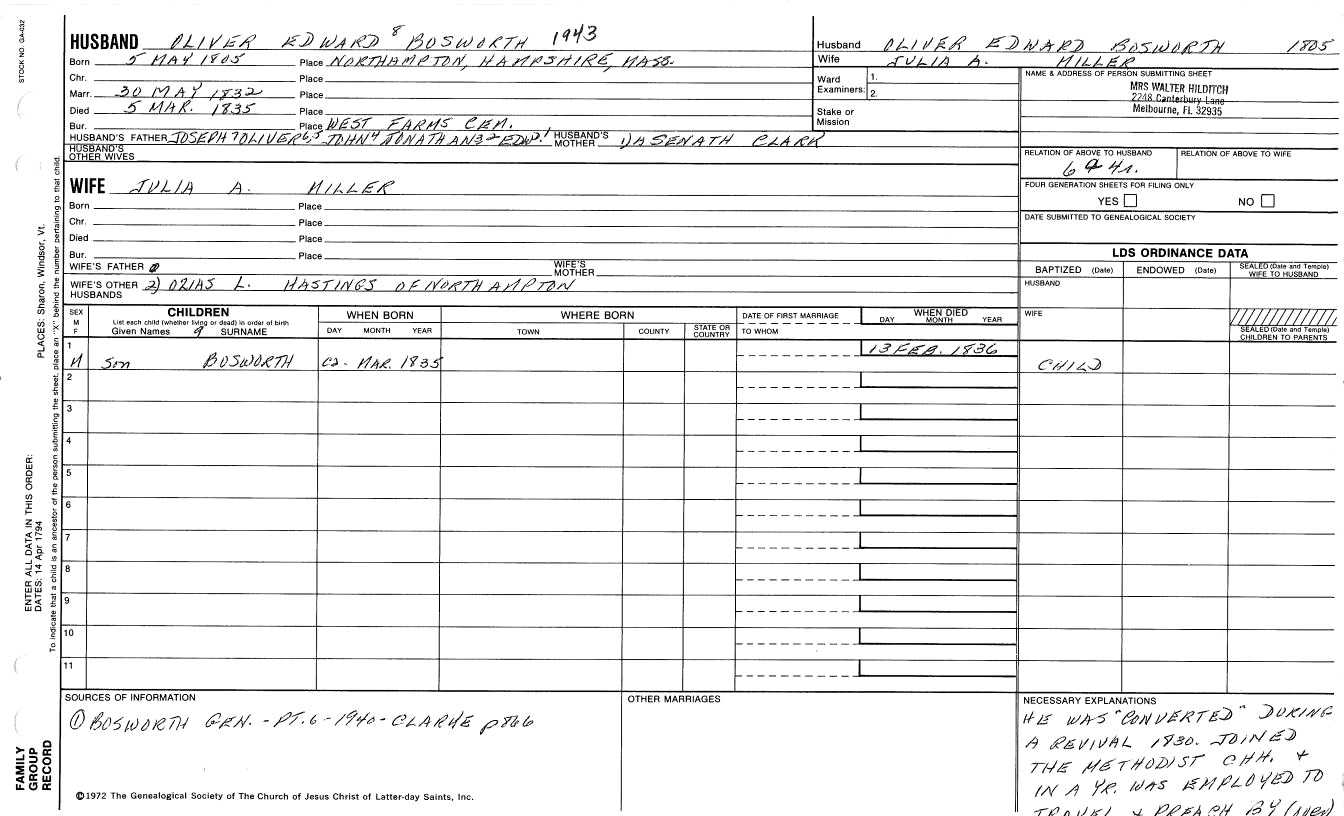 STOCK NO. GA-032
HUSBAND OLIVER EDWARD 8 BOSWORTH 1943
Born 5 MAY 1805 Place NORTHAMPTON, HAMPSHIRE, MASS.
Chr. Place
Marr. 30 MAY 1832 Place
Died 5 MAR. 1835 Place
Bur. Place WEST FARMS CEM.
HUSBAND'S FATHER JOSEPH 7 OLIVER 6,5 JOHN 4 JONATHAN 3 2 EDW. 1 HUSBAND'S MOTHER 1) ASENATH CLARK
HUSBAND'S OTHER WIVES
WIFE JULIA A. MILLER
Born Place
Chr. Place
Died Place
Bur. Place
WIFE'S FATHER WIFE'S MOTHER
WIFE'S OTHER HUSBANDS 2) L. HASTINGS OF NORTHAMPTON
Husband OLIVER EDWARD BOSWORTH 1805
Wife JULIA A. MILLER
Ward Examiners: 1. 2.
Stake or Mission
NAME & ADDRESS OF PERSON SUBMITTING SHEET
MRS WALTER HILDITCH
2248 Canterbury Lane
Melbourne, FL 32935
RELATION OF ABOVE TO HUSBAND RELATION OF ABOVE TO WIFE
FOUR GENERATION SHEETS FOR FILING ONLY
YES NO
DATE SUBMITTED TO GENEALOGICAL SOCIETY
LDS ORDINANCE DATA
BAPTIZED (Date) ENDOWED (Date) SEALED (Date and Temple) WIFE TO HUSBAND
HUSBAND
WIFE
SEALED (Date and Temple) CHILDREN TO PARENTS
SEX M F
CHILDREN
List each child (whether living or dead) in order of birth
Given Names 9 SURNAME
WHEN BORN
DAY MONTH YEAR
WHERE BORN
TOWN COUNTY STATE OR COUNTRY
DATE OF FIRST MARRIAGE
TO WHOM
WHEN DIED
DAY MONTH YEAR
1 M Son BOSWORTH ca. MAR. 1835 13 FEB. 1836 CHILD
2
3
4
5
6
7
8
9
10
11
SOURCES OF INFORMATION
① BOSWORTH GEN. - PT. 6 - 1940 - CLARKE p 866
OTHER MARRIAGES
NECESSARY EXPLANATIONS
HE WAS "CONVERTED" DURING
A REVIVAL 1830. JOINED
THE METHODIST CHH. +
IN A YR. WAS EMPLOYED TO
TRAVEL & PREACH BY (over)
©1972 The Genealogical Society of The Church of Jesus Christ of Latter-day Saints, Inc.
FAMILY GROUP RECORD
ENTER ALL DATA IN THIS ORDER:
DATES: 14 Apr 1794
PLACES: Sharon, Windsor, Vt.
To indicate that a child is an ancestor of the person submitting the sheet, place an "X" behind the number pertaining to that child.